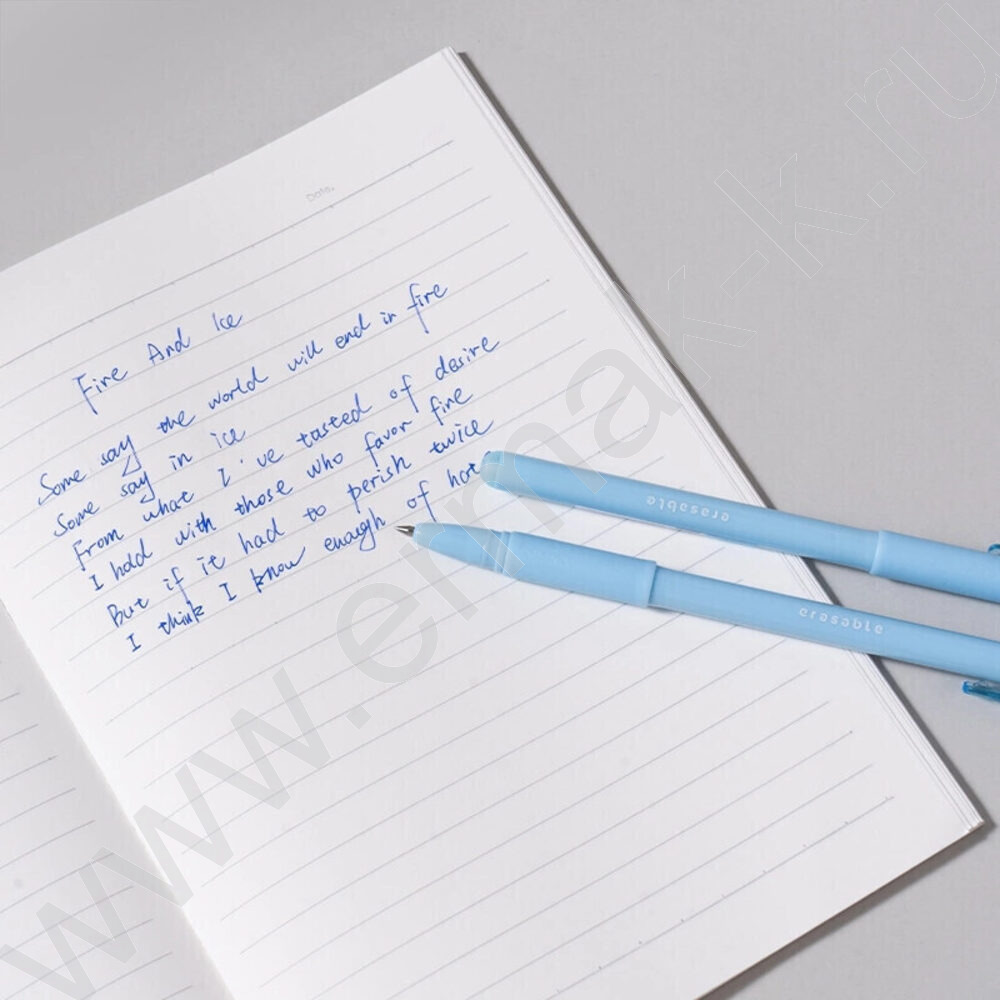 Date.
Fire And Ice
Some say the world will end in fire
Some say in ice
From what I've tasted of desire
I hold with those who favor fire
But if it had to perish twice
I think I know enough of hat
erasable
erasable
www.ermak-k.ru